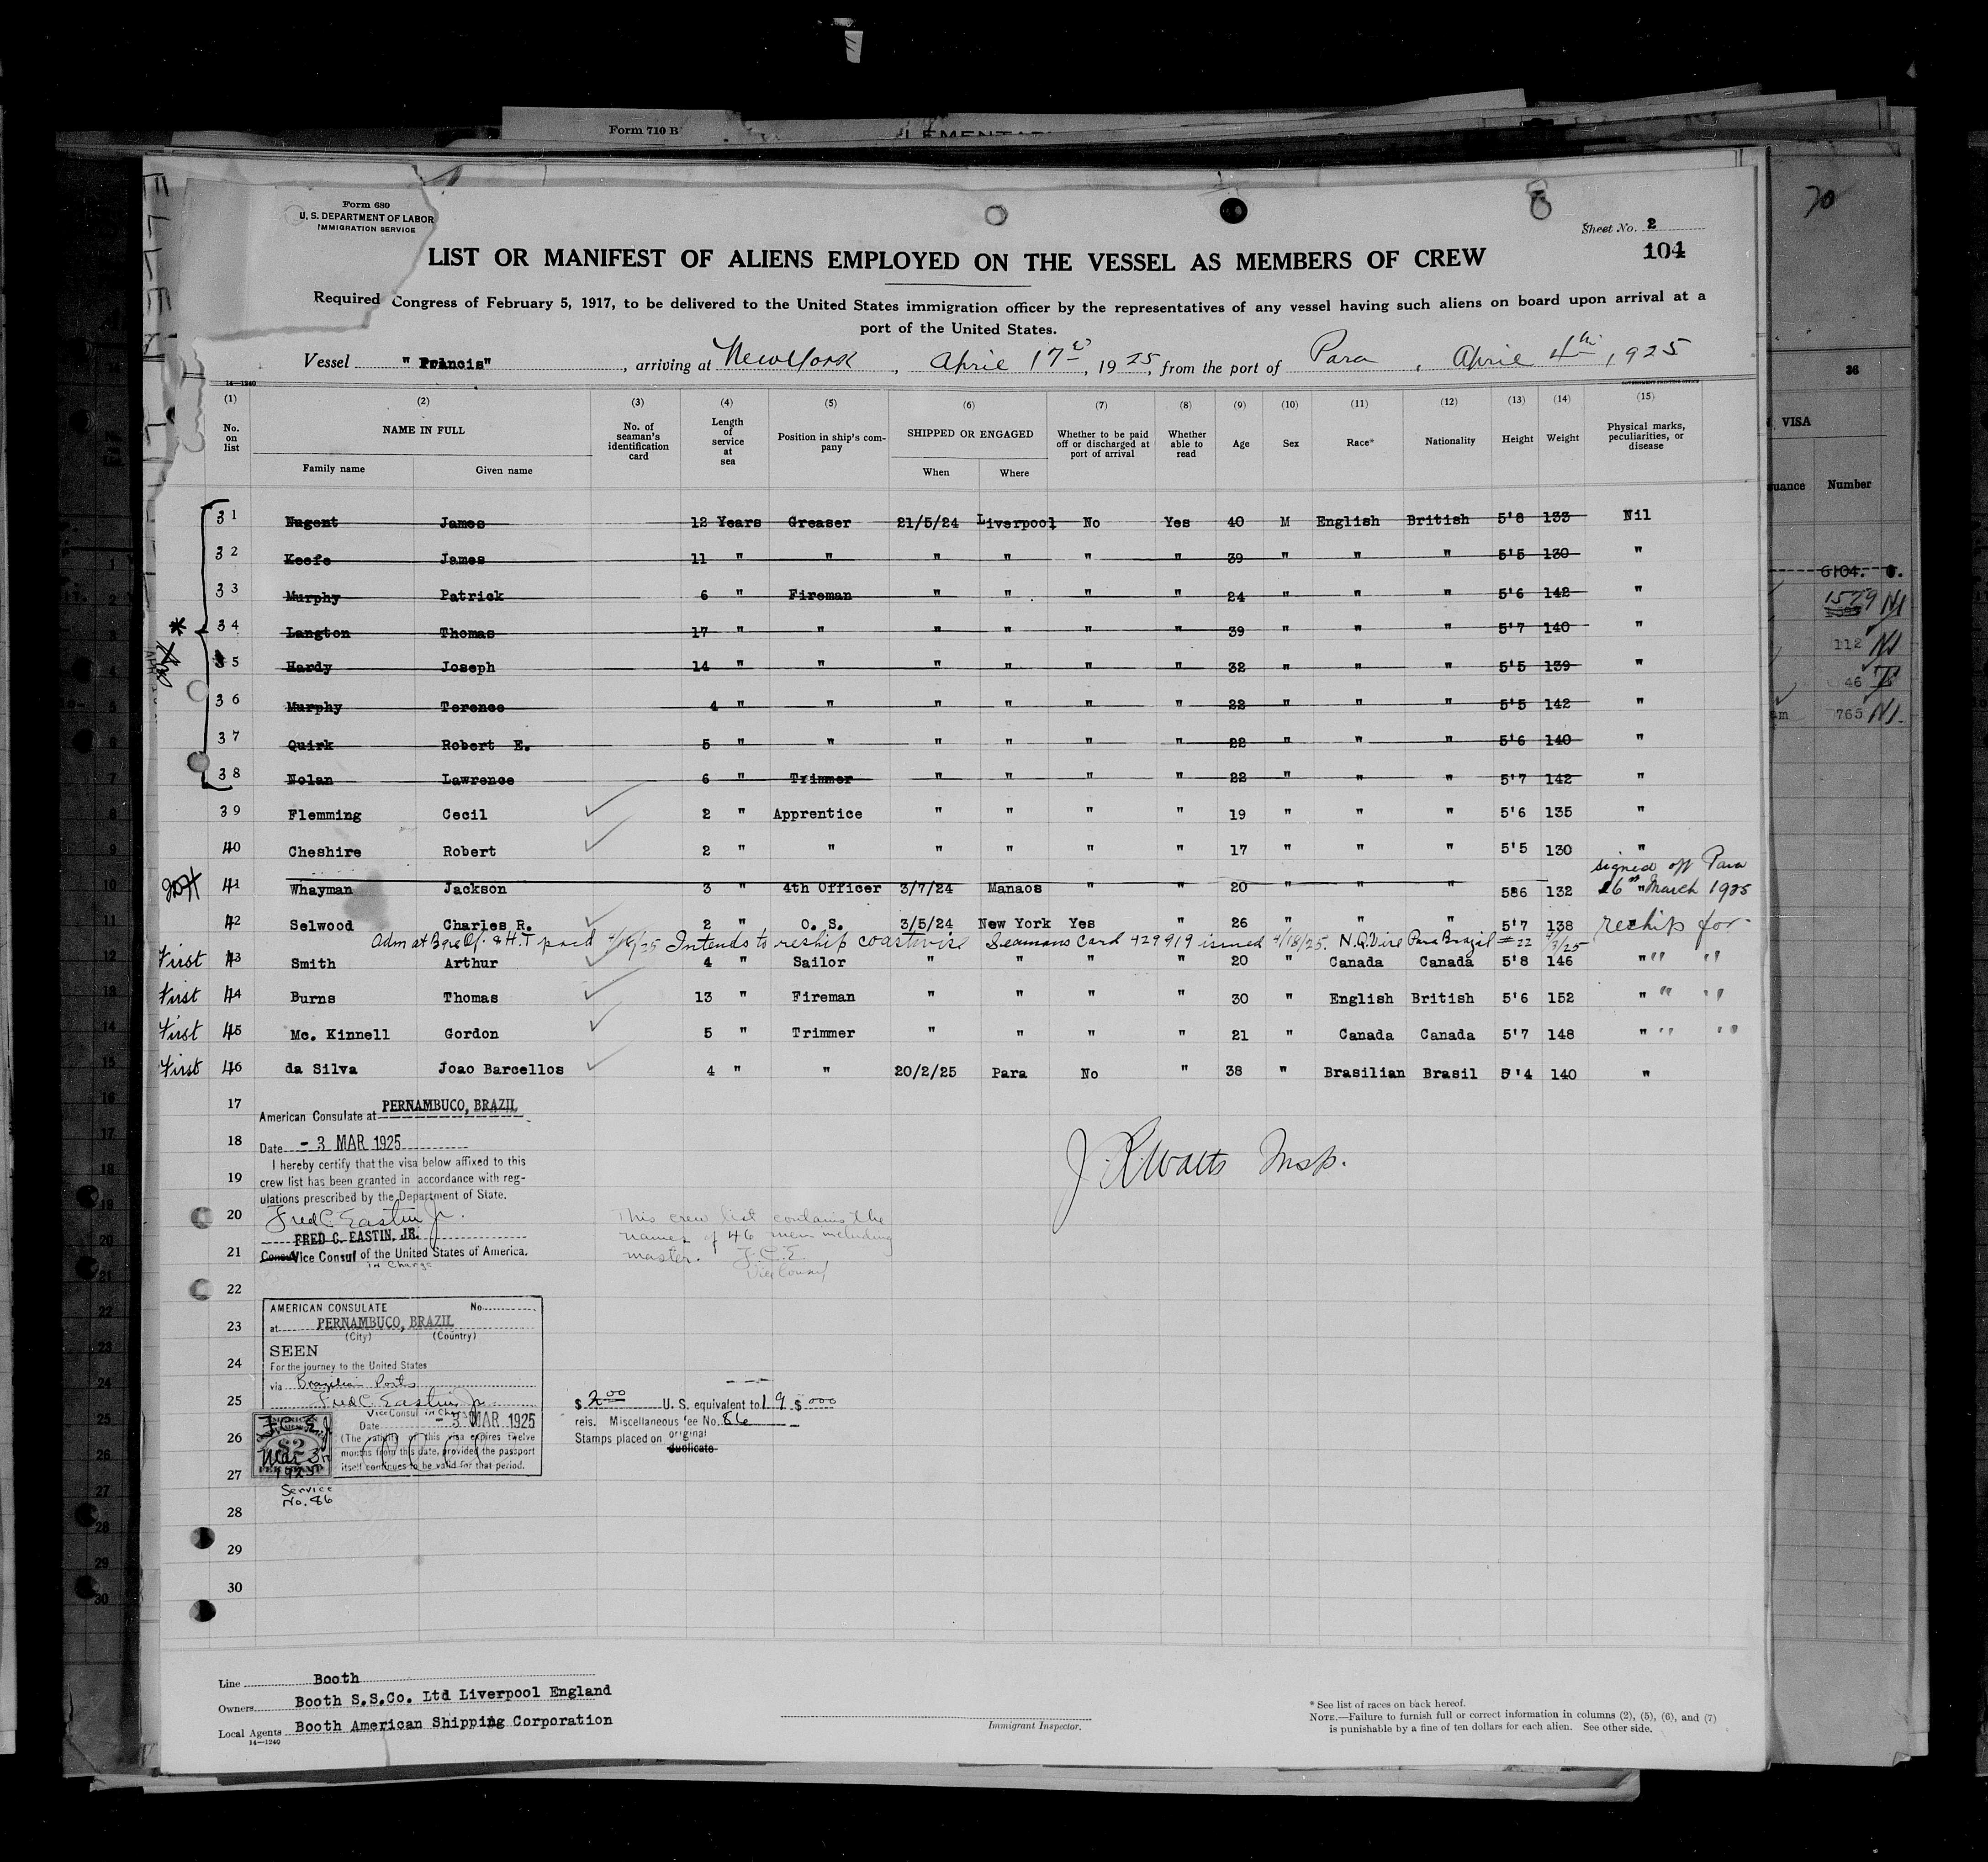 Form 710 B
Form 680
U. S. DEPARTMENT OF LABOR
IMMIGRATION SERVICE
Sheet No. 2
104
LIST OR MANIFEST OF ALIENS EMPLOYED ON THE VESSEL AS MEMBERS OF CREW
Required Congress of February 5, 1917, to be delivered to the United States immigration officer by the representatives of any vessel having such aliens on board upon arrival at a
port of the United States.
Vessel "Francis", arriving at New York, April 17th, 1925, from the port of Para, April 4th, 1925
14—1240
(1) (2) (3) (4) (5) (6) (7) (8) (9) (10) (11) (12) (13) (14) (15)
No. on list NAME IN FULL Family name Given name No. of seaman's identification card Length of service at sea Position in ship's company SHIPPED OR ENGAGED When Where Whether to be paid off or discharged at port of arrival Whether able to read Age Sex Race* Nationality Height Weight Physical marks, peculiarities, or disease
31 Nugent James 12 Years Greaser 21/5/24 Liverpool No Yes 40 M English British 5'8 133 Nil
32 Keefe James 11 " " " " " " 39 " " " 5'5 130 "
33 Murphy Patrick 6 " Fireman " " " " 24 " " " 5'6 142 "
34 Langton Thomas 17 " " " " " " 39 " " " 5'7 140 "
35 Hardy Joseph 14 " " " " " " 32 " " " 5'5 139 "
36 Murphy Terence 4 " " " " " " 22 " " " 5'5 142 "
37 Quirk Robert E. 5 " " " " " " 22 " " " 5'6 140 "
38 Nolan Lawrence 6 " Trimmer " " " " 22 " " " 5'7 142 "
39 Flemming Cecil 2 " Apprentice " " " " 19 " " " 5'6 135 "
40 Cheshire Robert 2 " " " " " " 17 " " " 5'5 130 "
signed off Para
41 Whayman Jackson 3 " 4th Officer 3/7/24 Manaos " " 20 " " " 586 132 26th March 1925
42 Selwood Charles R. 2 " O. S. 3/5/24 New York Yes " 26 " " " 5'7 138 reship for
Adm at Barge Of. & H.T paid 4/18/25 Intends to reship coastwise Seamans Card 429919 issued 4/18/25. N.Q. Para Brazil #22
First 43 Smith Arthur 4 " Sailor " " " " 20 " Canada Canada 5'8 146 " " "
First 44 Burns Thomas 13 " Fireman " " " " 30 " English British 5'6 152 " " "
First 45 Mc. Kinnell Gordon 5 " Trimmer " " " " 21 " Canada Canada 5'7 148 " " "
First 46 da Silva Joao Barcellos 4 " " 20/2/25 Para No " 38 " Brasilian Brasil 5'4 140 "
17
American Consulate at PERNAMBUCO, BRAZIL
18
Date - 3 MAR 1925
I hereby certify that the visa below affixed to this
19
crew list has been granted in accordance with reg-
ulations prescribed by the Department of State.
J. R. Watts Insp.
20
Fred C. Eastin Jr.
FRED C. EASTIN, JR.
21
Consul Vice Consul of the United States of America.
in Charge
This crew list contains the
names of 46 men including
master. F.C.E.
Vice Consul
22
AMERICAN CONSULATE No.
23
at PERNAMBUCO, BRAZIL
(City) (Country)
SEEN
24
For the journey to the United States
via Brazilian Ports
25
Fred C. Eastin Jr.
Vice Consul in Charge
Date - 3 MAR 1925
26
(The validity of this visa expires twelve
months from this date, provided the passport
itself continues to be valid for that period.
F.C.E. Jr
$2
Mar 3
1925
27
Service
No. 86
$ 2.00 U. S. equivalent to 19 $ 000
reis. Miscellaneous fee No. 86
Stamps placed on original
duplicate
28
29
30
Line Booth
Owners Booth S.S.Co. Ltd Liverpool England
Local Agents Booth American Shipping Corporation
14—1240
Immigrant Inspector.
* See list of races on back hereof.
NOTE.—Failure to furnish full or correct information in columns (2), (5), (6), and (7)
is punishable by a fine of ten dollars for each alien. See other side.
70
36
VISA
Number
6104.
1579
112
46
765